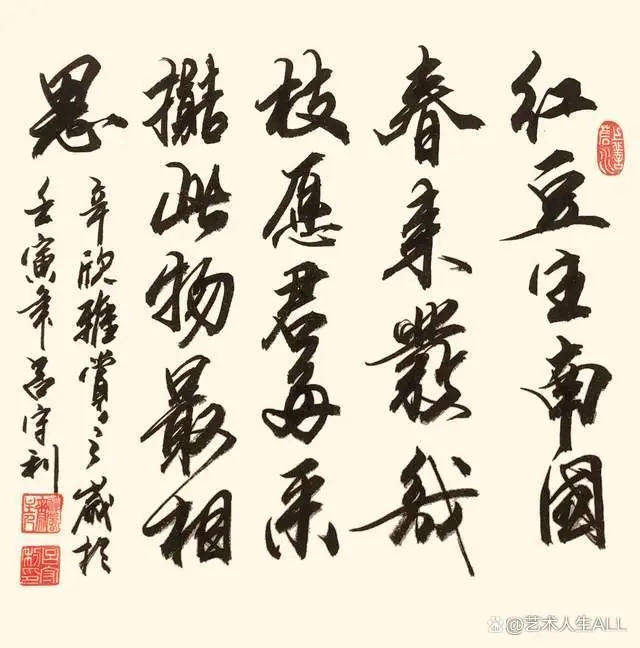 红豆生南國
春来發幾
枝愿君多采
擷此物最相
思
辛欣雅賞之歲於
壬寅年吕守利
上善若水
@艺术人生ALL